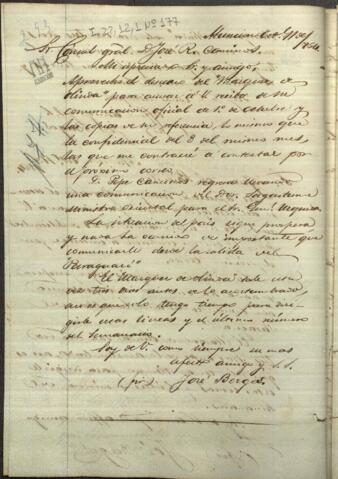 I-22,12,1 Nº 177
Asuncion Oct.
Sr. Consul gral. D. José R. Caminos.
Muy apreciado Sr. y amigo:
Aprovecho el descenso del "Marques de
Olinda" para avisar á V. recibo de su
comunicacion oficial de 1º de octubre y
las copias de su referencia, lo mismo que
la confidencial del 3 del mismo mes
las que me contraeré á contestar por
el proximo correo.
D. Pepe Caminos regresa llevando
una comunicacion del Dor. Sagastume
Ministro Oriental para el Sr. Genl. Urquiza.
La situacion del país sigue prospera
y nada ha ocurrido de importante que
comunicarle desde la salida del
Paraguarí.
El Marques de Olinda sale esta
vez tres dias antes de lo acostumbrado
asi es que solo tengo tiempo para diri-
girle unas lineas y el último número
del Semanario.
Soy de V. como siempre su mas
afectº amigo y S. S.
José Berges